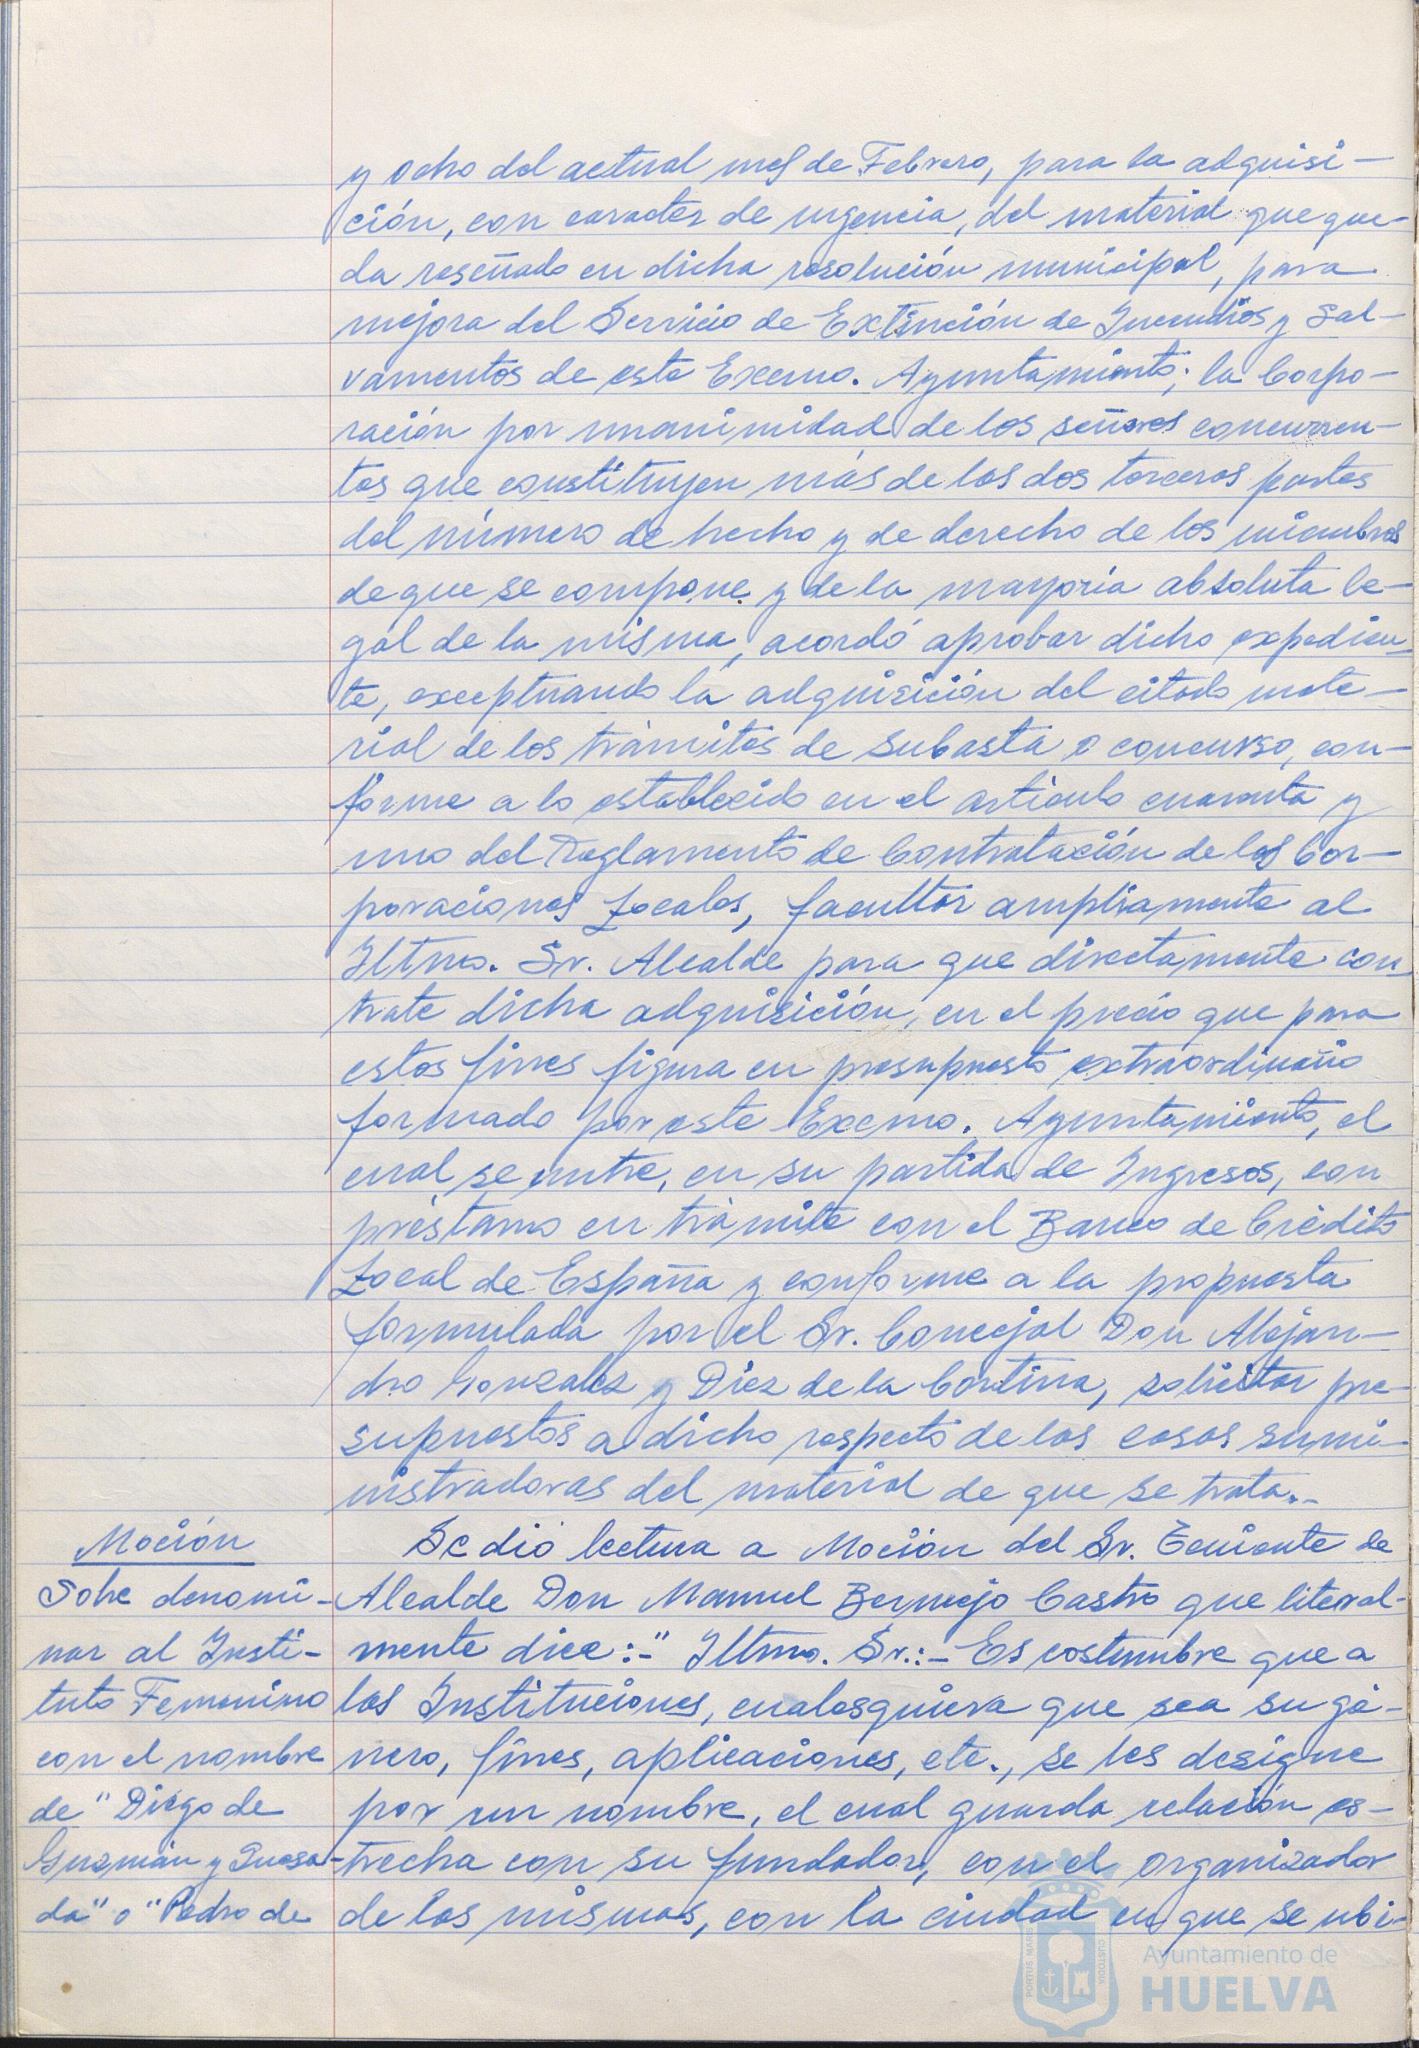 y ocho del actual mes de Febrero, para la adquisi-
ción, con caracter de urgencia, del material que que-
da reseñado en dicha resolución municipal, para
mejora del Servicio de Extinción de Incendios y Sal-
vamentos de este Excmo. Ayuntamiento; la Corpo-
ración por unanimidad de los señores concurren-
tes que constituyen más de las dos terceras partes
del número de hecho y de derecho de los miembros
de que se compone y de la mayoria absoluta le-
gal de la misma, acordó aprobar dicho expedien-
te, exceptuando la adquisición del citado mate-
rial de los trámites de subasta o concurso, con-
forme a lo establecido en el articulo cuarenta y
uno del Reglamento de Contratación de las Cor-
poraciones Locales, facultar ampliamente al
Iltmo. Sr. Alcalde para que directamente con
trate dicha adquisición, en el precio que para
estos fines figura en presupuesto extraordinario
formado por este Excmo. Ayuntamiento, el
cual se nutre, en su partida de Ingresos, con
préstamo en trámite con el Banco de Crédito
Local de España y conforme a la propuesta
formulada por el Sr. Concejal Don Alejan-
dro Gonzalez y Diez de la Cortina, solicitar pre-
supuestos a dicho respecto de las casas sumi-
nistradoras del material de que se trata.-
Moción
Sobre denomi-
nar al Insti-
tuto Femenino
con el nombre
de "Diego de
Guzmán y Quesa-
da" o "Pedro de
Se dió lectura a Moción del Sr. Teniente de
Alcalde Don Manuel Bermejo Castro que literal-
mente dice:-" Iltmo. Sr.:- Es costumbre que a
las Instituciones, cualesquiera que sea su gé-
nero, fines, aplicaciones, etc., se les designe
por un nombre, el cual guarda relación es-
trecha con su fundador, con el organizador
de las mismas, con la ciudad en que se ubi-
PORTUS MARIS
CUSTODIA
Ayuntamiento de
HUELVA